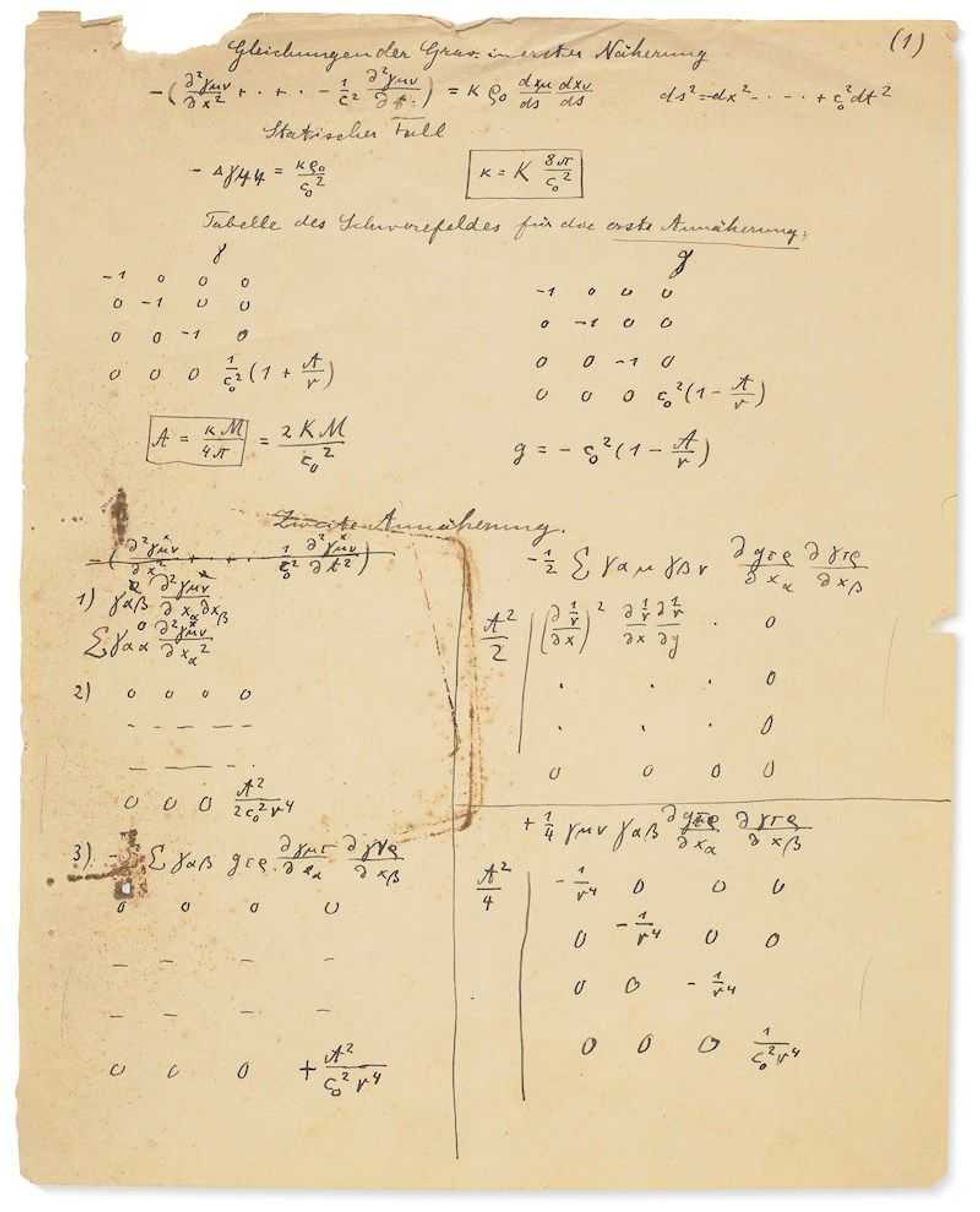 (1)
Gleichungen der Grav. in erster Näherung
−(∂²γμν/∂x² + · + · − 1/c² ∂²γμν/∂t²) = κ ρ₀ dxμ/ds dxν/ds    ds² = −dx² − · − · + c₀²dt²
Statischer Fall
− Δγ44 = κρ₀/c₀²    κ = K 8π/c₀²
Tabelle des Schwerefeldes für die erste Annäherung.
γ    g
−1 0 0 0    −1 0 0 0
0 −1 0 0    0 −1 0 0
0 0 −1 0    0 0 −1 0
0 0 0 1/c₀² (1 + A/r)    0 0 0 c₀²(1 − A/r)
A = κM/4π = 2KM/c₀²    g = − c₀²(1 − A/r)
Zweite Annäherung.
−(∂²γμν/∂x² + · + · 1/c₀² ∂²γμν/∂t²)
1) γαβ ∂²γμν/∂xα∂xβ
Σ γαα ∂²γμν/∂xα²
2) 0 0 0 0
– – – – –
– – – –
0 0 0 A²/2c₀²r⁴
3) Σ γαβ gτρ ∂γμτ/∂xα ∂γνρ/∂xβ
0 0 0 0
– – – –
– – – –
0 0 0 + A²/c₀²r⁴
−1/2 Σ γαμ γβν ∂gτρ/∂xα ∂γτρ/∂xβ
A²/2 | (∂1/r/∂x)² ∂1/r/∂x ∂1/r/∂y · 0
· · · 0
· · · 0
0 0 0 0
+ 1/4 γμν γαβ ∂gτρ/∂xα ∂γτρ/∂xβ
A²/4 | −1/r⁴ 0 0 0
0 −1/r⁴ 0 0
0 0 −1/r⁴
0 0 0 1/c₀²r⁴